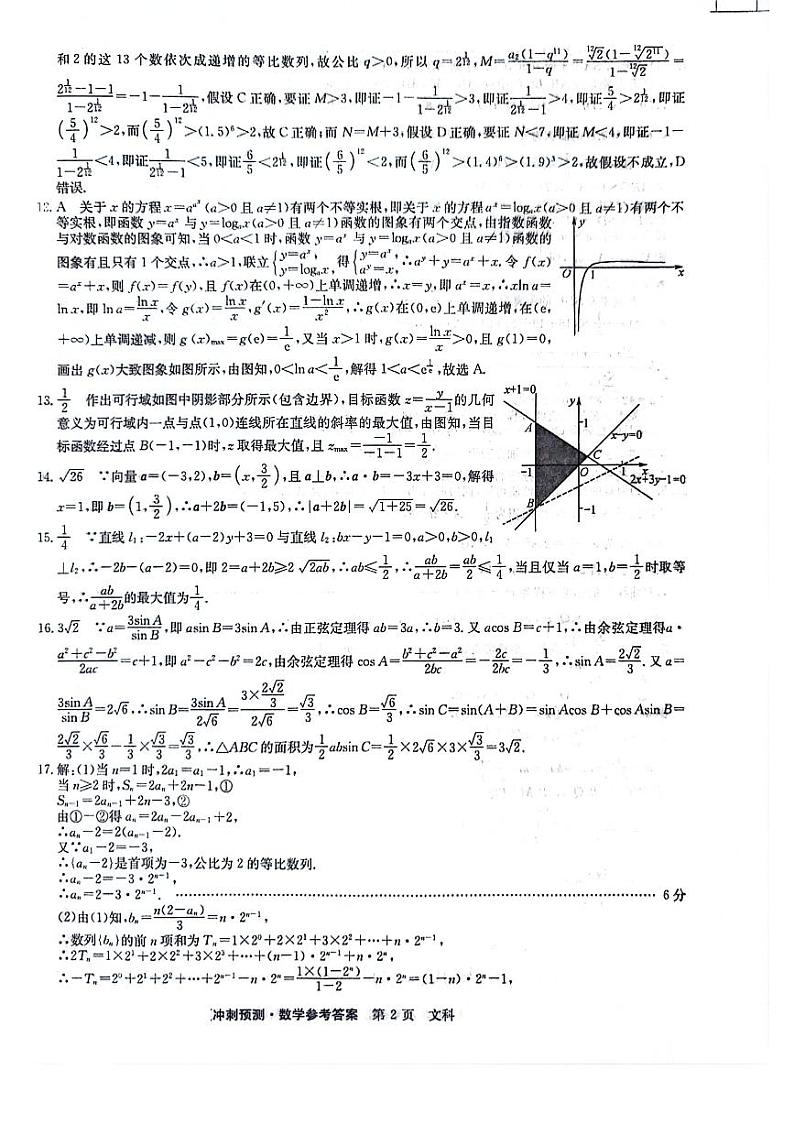 和2的这13个数依次成递增的等比数列,故公比 q>0,所以 q=2^{1/12}, M=\frac{a_2(1-q^{11})}{1-q}=\frac{\sqrt[12]{2}(1-\sqrt[12]{2^{11}})}{1-\sqrt[12]{2}}=
\frac{2^{1/12}-1-1}{1-2^{1/12}}=-1-\frac{1}{1-2^{1/12}},假设C正确,要证 M>3,即证-1-\frac{1}{1-2^{1/12}}>3,即证\frac{1}{2^{1/12}-1}>4,即证\frac{5}{4}>2^{1/12},即证
(\frac{5}{4})^{12}>2,而(\frac{5}{4})^{12}>(1.5)^6>2,故C正确;而 N=M+3,假设D正确,要证 N<7,即证 M<4,即证-1-
\frac{1}{1-2^{1/12}}<4,即证\frac{1}{2^{1/12}-1}<5,即证\frac{6}{5}<2^{1/12},即证(\frac{6}{5})^{12}<2,而(\frac{6}{5})^{12}>(1.4)^6>(1.9)^3>2,故假设不成立,D
错误.
12. A 关于x的方程 x=a^{a^x}(a>0且a≠1)有两个不等实根,即关于x的方程 a^x=log_a x(a>0且a≠1)有两个不
等实根,即函数 y=a^x 与 y=log_a x(a>0且a≠1)函数的图象有两个交点,由指数函数
与对数函数的图象可知,当0<a<1时,函数 y=a^x 与 y=log_a x(a>0且a≠1)函数的
图象有且只有1个交点,∴a>1,联立{y=a^x, y=log_a x, 得{y=a^x, a^y=x, ∴a^y+y=a^x+x.令 f(x)
=a^x+x,则 f(x)=f(y),且 f(x)在(0,+∞)上单调递增,∴x=y,即 a^x=x,∴xln a=
ln x,即 ln a=\frac{ln x}{x},令 g(x)=\frac{ln x}{x},g′(x)=\frac{1-ln x}{x^2},∴g(x)在(0,e)上单调递增,在(e,
+∞)上单调递减,则 g(x)_{max}=g(e)=\frac{1}{e},又当 x>1时,g(x)=\frac{ln x}{x}>0,且 g(1)=0,
画出 g(x)大致图象如图所示,由图知,0<ln a<\frac{1}{e},解得1<a<e^{1/e},故选A.
y
O
1
x
13. \frac{1}{2} 作出可行域如图中阴影部分所示(包含边界),目标函数 z=\frac{y}{x-1}的几何
意义为可行域内一点与点(1,0)连线所在直线的斜率的最大值,由图知,当目
标函数经过点 B(-1,-1)时,z取得最大值,且 z_{max}=\frac{-1}{-1-1}=\frac{1}{2}.
x+1=0
y
A
1
x-y=0
C
-1
O
1
x
2x+3y-1=0
B
-1
14. \sqrt{26} ∵向量 a=(-3,2),b=(x,\frac{3}{2}),且 a⊥b,∴a·b=-3x+3=0,解得
x=1,即 b=(1,\frac{3}{2}),∴a+2b=(-1,5),∴|a+2b|=\sqrt{1+25}=\sqrt{26}.
15. \frac{1}{4} ∵直线 l_1:-2x+(a-2)y+3=0与直线 l_2:bx-y-1=0,a>0,b>0,l_1
⊥l_2,∴-2b-(a-2)=0,即2=a+2b≥2\sqrt{2ab},∴ab≤\frac{1}{2},∴\frac{ab}{a+2b}=\frac{ab}{2}≤\frac{1}{4},当且仅当 a=1,b=\frac{1}{2}时取等
号,∴\frac{ab}{a+2b}的最大值为\frac{1}{4}.
16. 3\sqrt{2} ∵a=\frac{3sin A}{sin B},即 asin B=3sin A,∴由正弦定理得 ab=3a,∴b=3.又 acos B=c+1,∴由余弦定理得a·
\frac{a^2+c^2-b^2}{2ac}=c+1,即 a^2-c^2-b^2=2c,由余弦定理得 cos A=\frac{b^2+c^2-a^2}{2bc}=-\frac{2c}{2bc}=-\frac{1}{3},∴sin A=\frac{2\sqrt{2}}{3}.又 a=
\frac{3sin A}{sin B}=2\sqrt{6},∴sin B=\frac{3sin A}{2\sqrt{6}}=\frac{3×\frac{2\sqrt{2}}{3}}{2\sqrt{6}}=\frac{\sqrt{3}}{3},∴cos B=\frac{\sqrt{6}}{3},∴sin C=sin(A+B)=sin Acos B+cos Asin B=
\frac{2\sqrt{2}}{3}×\frac{\sqrt{6}}{3}-\frac{1}{3}×\frac{\sqrt{3}}{3}=\frac{\sqrt{3}}{3},∴△ABC的面积为\frac{1}{2}absin C=\frac{1}{2}×2\sqrt{6}×3×\frac{\sqrt{3}}{3}=3\sqrt{2}.
17. 解:(1)当 n=1时,2a_1=a_1-1,∴a_1=-1,
当 n≥2时,S_n=2a_n+2n-1,①
S_{n-1}=2a_{n-1}+2n-3,②
由①-②得 a_n=2a_n-2a_{n-1}+2,
∴a_n-2=2(a_{n-1}-2).
又∵a_1-2=-3,
∴{a_n-2}是首项为-3,公比为2的等比数列.
∴a_n-2=-3·2^{n-1},
∴a_n=2-3·2^{n-1}. …… 6分
(2)由(1)知,b_n=\frac{n(2-a_n)}{3}=n·2^{n-1},
∴数列{b_n}的前n项和为 T_n=1×2^0+2×2^1+3×2^2+…+n·2^{n-1},
∴2T_n=1×2^1+2×2^2+3×2^3+…+(n-1)·2^{n-1}+n·2^n,
∴-T_n=2^0+2^1+2^2+…+2^{n-1}-n·2^n=\frac{1×(1-2^n)}{1-2}-n·2^n=(1-n)·2^n-1,
冲刺预测·数学参考答案 第2页 文科